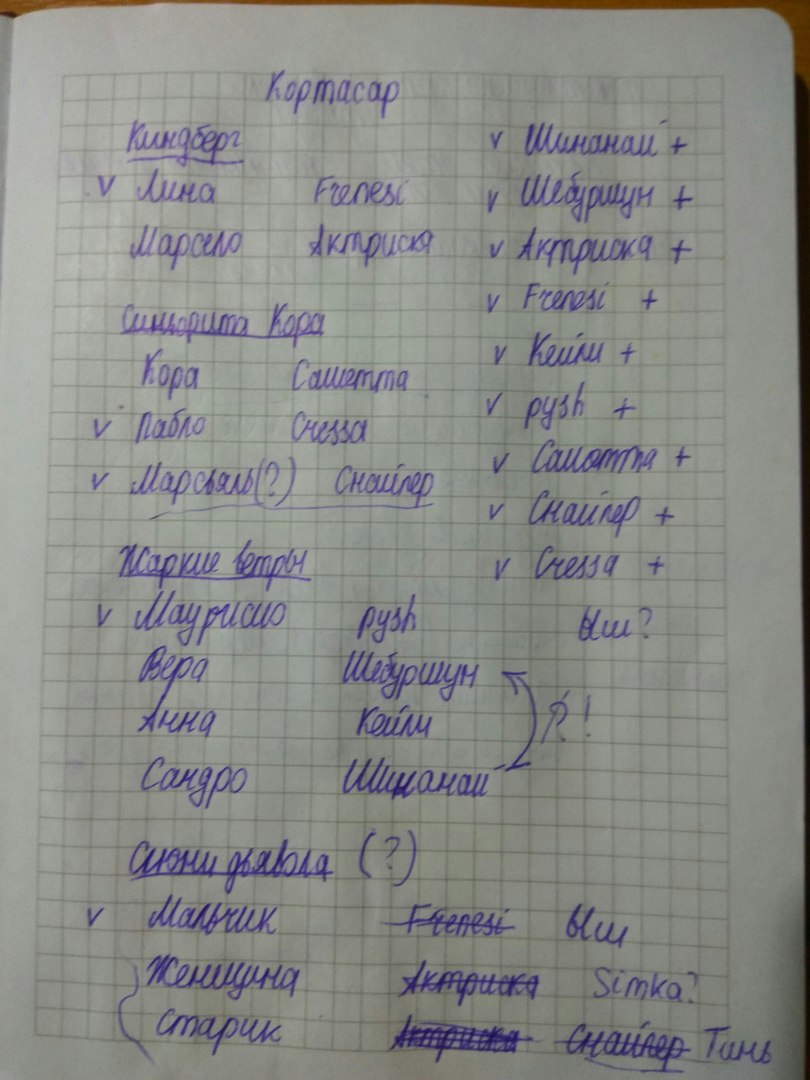 Кортасар
Киндберг
v Лина Frenesi
Марсело Актриска
Синьорита Кора
Кора Сашетта
v Пабло Cressa
v Марсьяль(?) Снайпер
Жаркие ветры
v Маурисио pysh
Вера Шебуршун
Анна Кейли
Сандро Шинанай
!
Слюни дьявола (?)
v Мальчик Frenesi Ыш
Женщина Актриска Simka?
Старик Актриска Снайпер Тинь
v Шинанай +
v Шебуршун +
v Актриска +
v Frenesi +
v Кейли +
v pysh +
v Сашетта +
v Снайпер +
v Cressa +
Ыш?